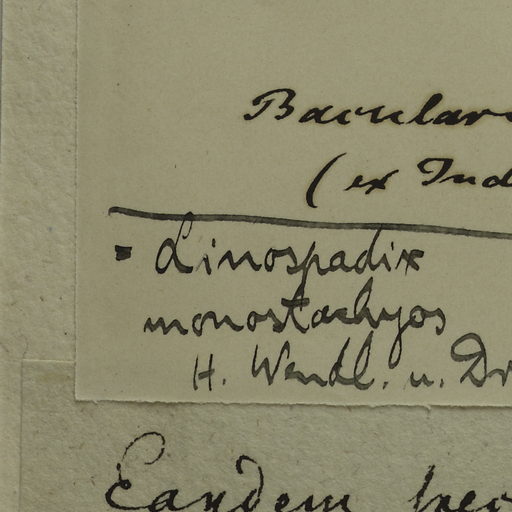 Bacular
(ex Ind
= Linospadix
monostachyos
H. Wendl. u. Dr
Eandem